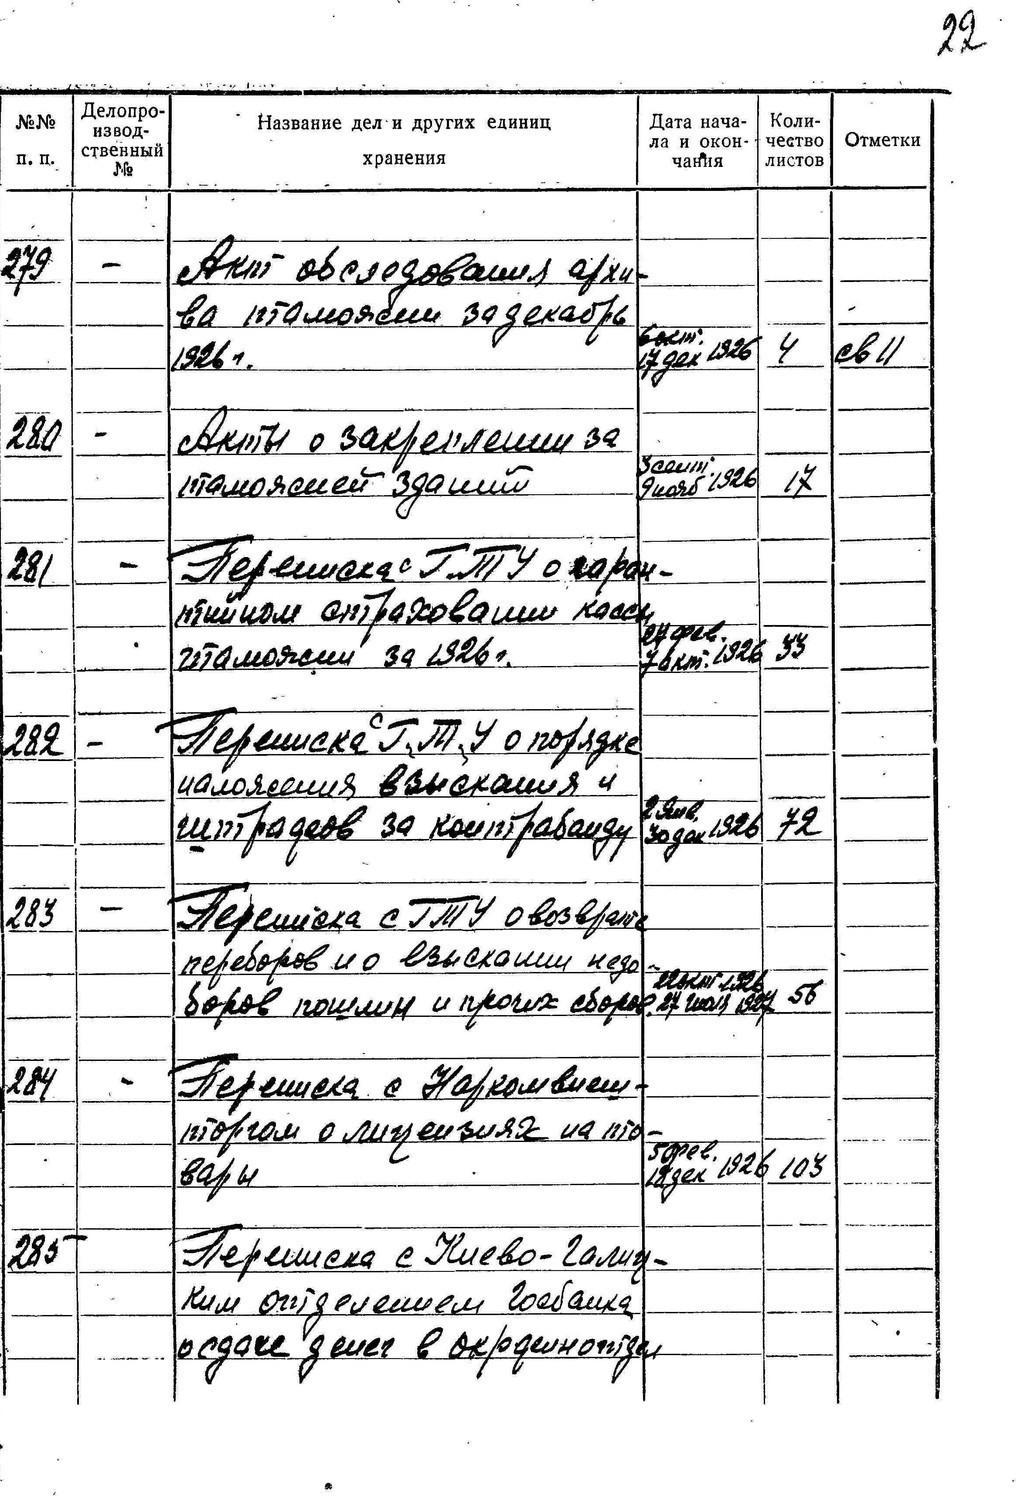 22
№№ п. п. Делопро-извод-ственный № Название дел и других единиц хранения Дата нача-ла и окон-чания Коли-чество листов Отметки
279 – Акт обследования архи-
ва таможни за декабрь
1926 г. 6 окт. 17 дек 1926 4 св 11
280 – Акты о закреплении за
таможней зданий 3 сент. 9 нояб 1926 17
281 – Переписка с Г.Т.У о гаран-
тийном страховании кассы
таможни за 1926 г. 24 фев. 7 окт. 1926 33
282 – Переписка с Г.Т.У о порядке
наложения взыскания и
штрафов за контрабанду 2 янв. 30 дек 1926 72
283 – Переписка с ГТУ о возврате
переборов и о взыскании недо-
боров пошлин и прочих сборов. 22 окт 1926 27 июля 1927 56
284 – Переписка с Наркомвнеш-
торгом о лицензиях на то-
вары 5 фев. 18 дек 1926 103
285 – Переписка с Киево-Галиц-
ким отделением Госбанка
о сдаче денег в окрфинотдел